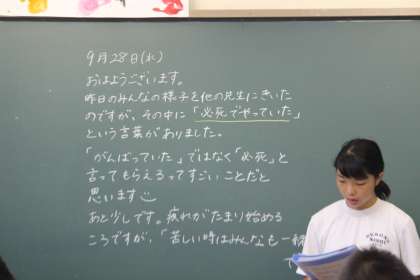 9月28日(水)
おはようございます。
昨日のみんなの様子を他の先生にきいた
のですが、その中に「必死でやっていた」
という言葉がありました。
「がんばっていた」ではなく「必死」と
言ってもらえるってすごいことだと
思います
あと少しです。疲れがたまり始める
ころですが、「苦しい時はみんなも一緒